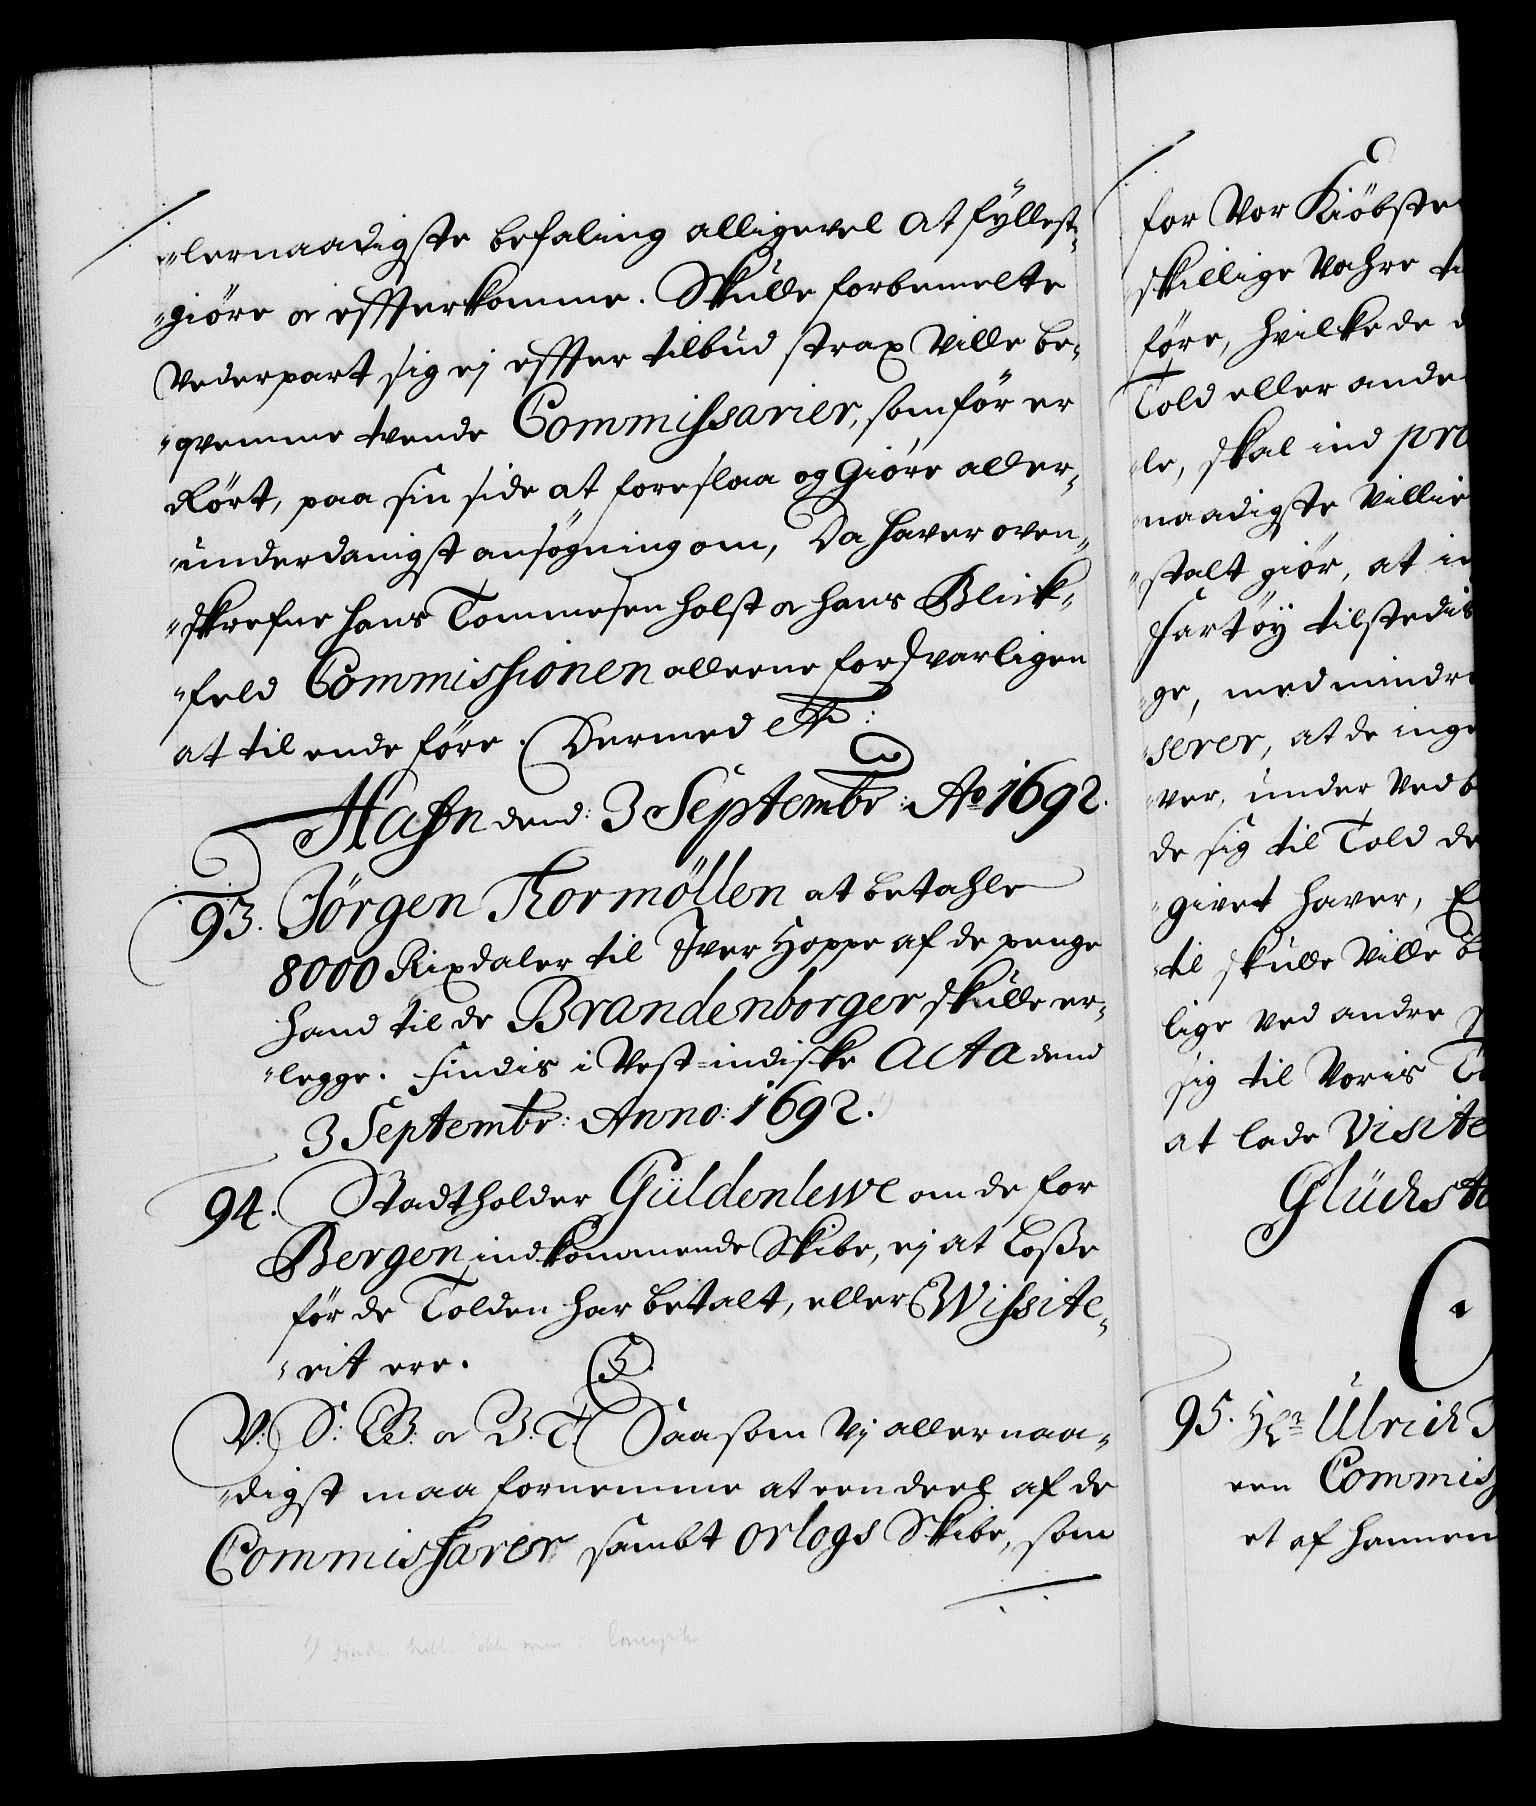 "lernaadigste befaling alligevel at fyllest„
"giöre oc effterkomme. Skulle forbemelte
Vederpart sig ej effter tilbud strax Ville be„
"qvemme tvende Commissarier, som för er
Rört, paa sin side at foreslaa og Giöre aller„
"underdanigst ansögning om, Da haver oven„
"skrefne Hans Tommesen Holst oc Hans Blick„
"feld Commissionen alleene forsvarligen
at til ende före. Dermed etc:
Hafn dend: 3 Septembr: Ao 1692.
93. Jörgen Thormöllen at betahle
8000 Rixdaler til Iver Hoppe af de penge
Hand til de Brandenborger skulle er„
"legge. findis i Vest=indiske Acta dend
3 Septembr: Anno: 1692.
94. Stadtholder Güldenlewe om de for
Bergen indkommende Skibe, ej at Losse
för de Tolden har betalt, eller Wissite„
"rit ere.
C5.
V: S: G: B: oc B: T: Saasom Vj allernaa„
"digst maa fornemme at een deel af de
Commissarer sambt Orlogs Skibe, som
for Vor Kiöbste
skillige Vahre ti
före, hvilke de
Told eller ande
"le, skal ind pro
"naadigste Villie
"stalt giör, at in
Fartöy tilstedis
"ge, med mindre
"serer, at de inge
"ver, under Ved b
de sig til Told de
"givet haver, E
til skulle Ville b
lige Ved andre
sig til Voris To
at lade Visite
Glücksta
95. Hr Ulrich
een Commiss
et af hannem